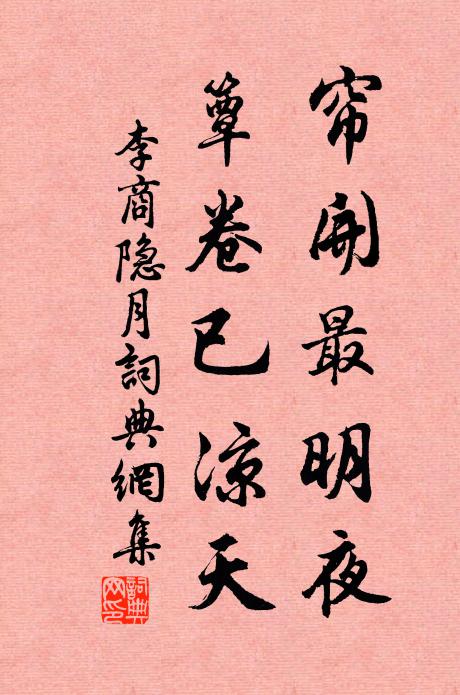 帘开最明夜
簟卷已凉天
李商隐月詞典網集
詞典网印